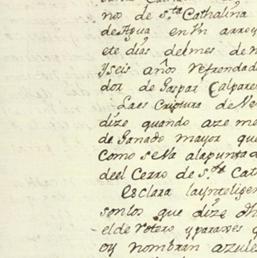 nos de S.ta Cathalina
de Agua en Un arroy
ete dias del mes de n
Yseis años Refrendad
dor de Gaspar Calpares
La es Criptura de Ve
dize quando aze me
de Ganado mayor que
Como se Va alapunta d
de el Cerro de S.ta Cat
es clara laynteligen
son los que dize
el de Potero y parares q
oy nombran azules